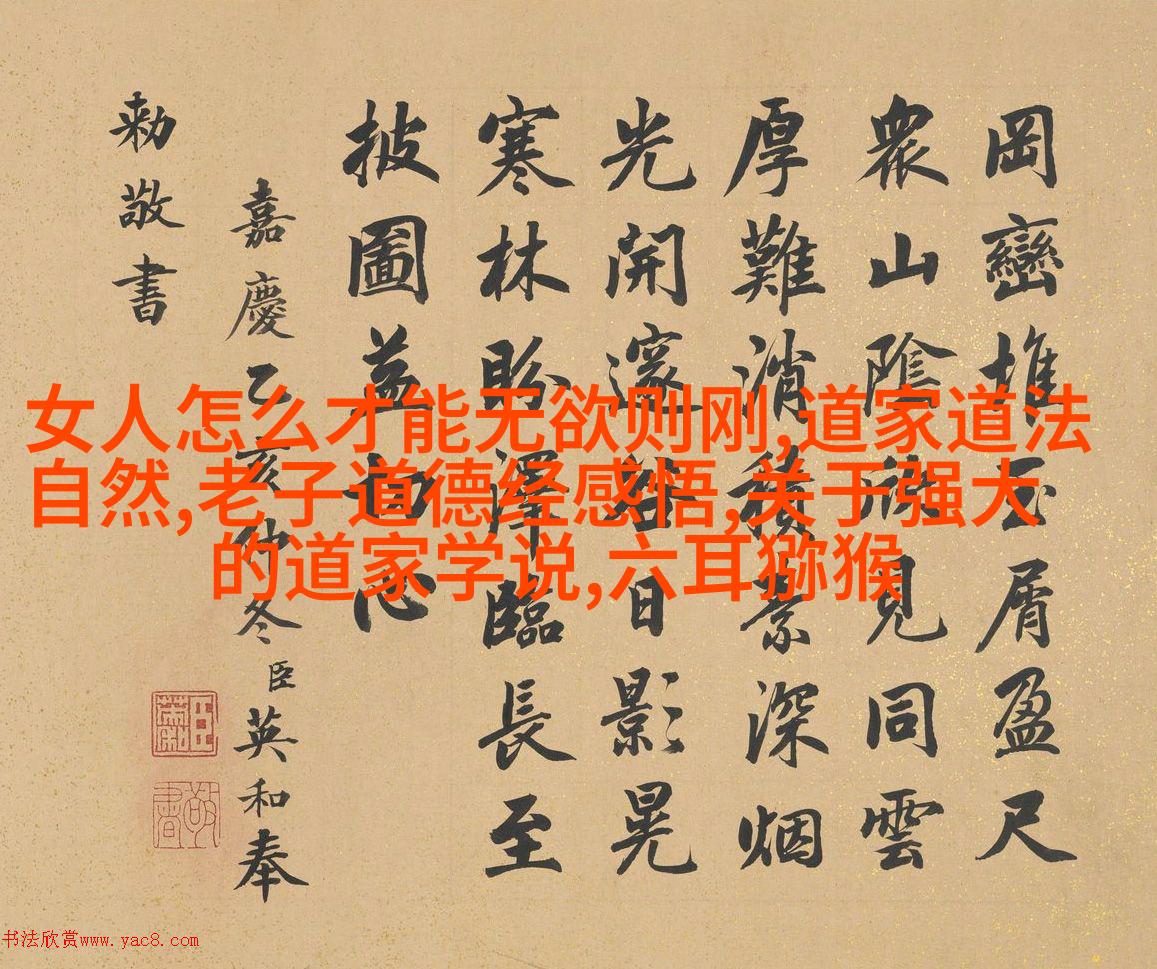 岡巒堆玉屑盈尺
衆山陰欣見同雲
厚難消積素深烟
光開邃日影晃
寒林盼澤臨長至
披圖益切心
嘉慶乙亥仲冬臣英和奉
勅敬書
女人怎么才能无欲则刚,道家道法
自然,老子道德经感悟,关于强大
的道家学说,六耳猕猴
书法欣赏www.yac8.com